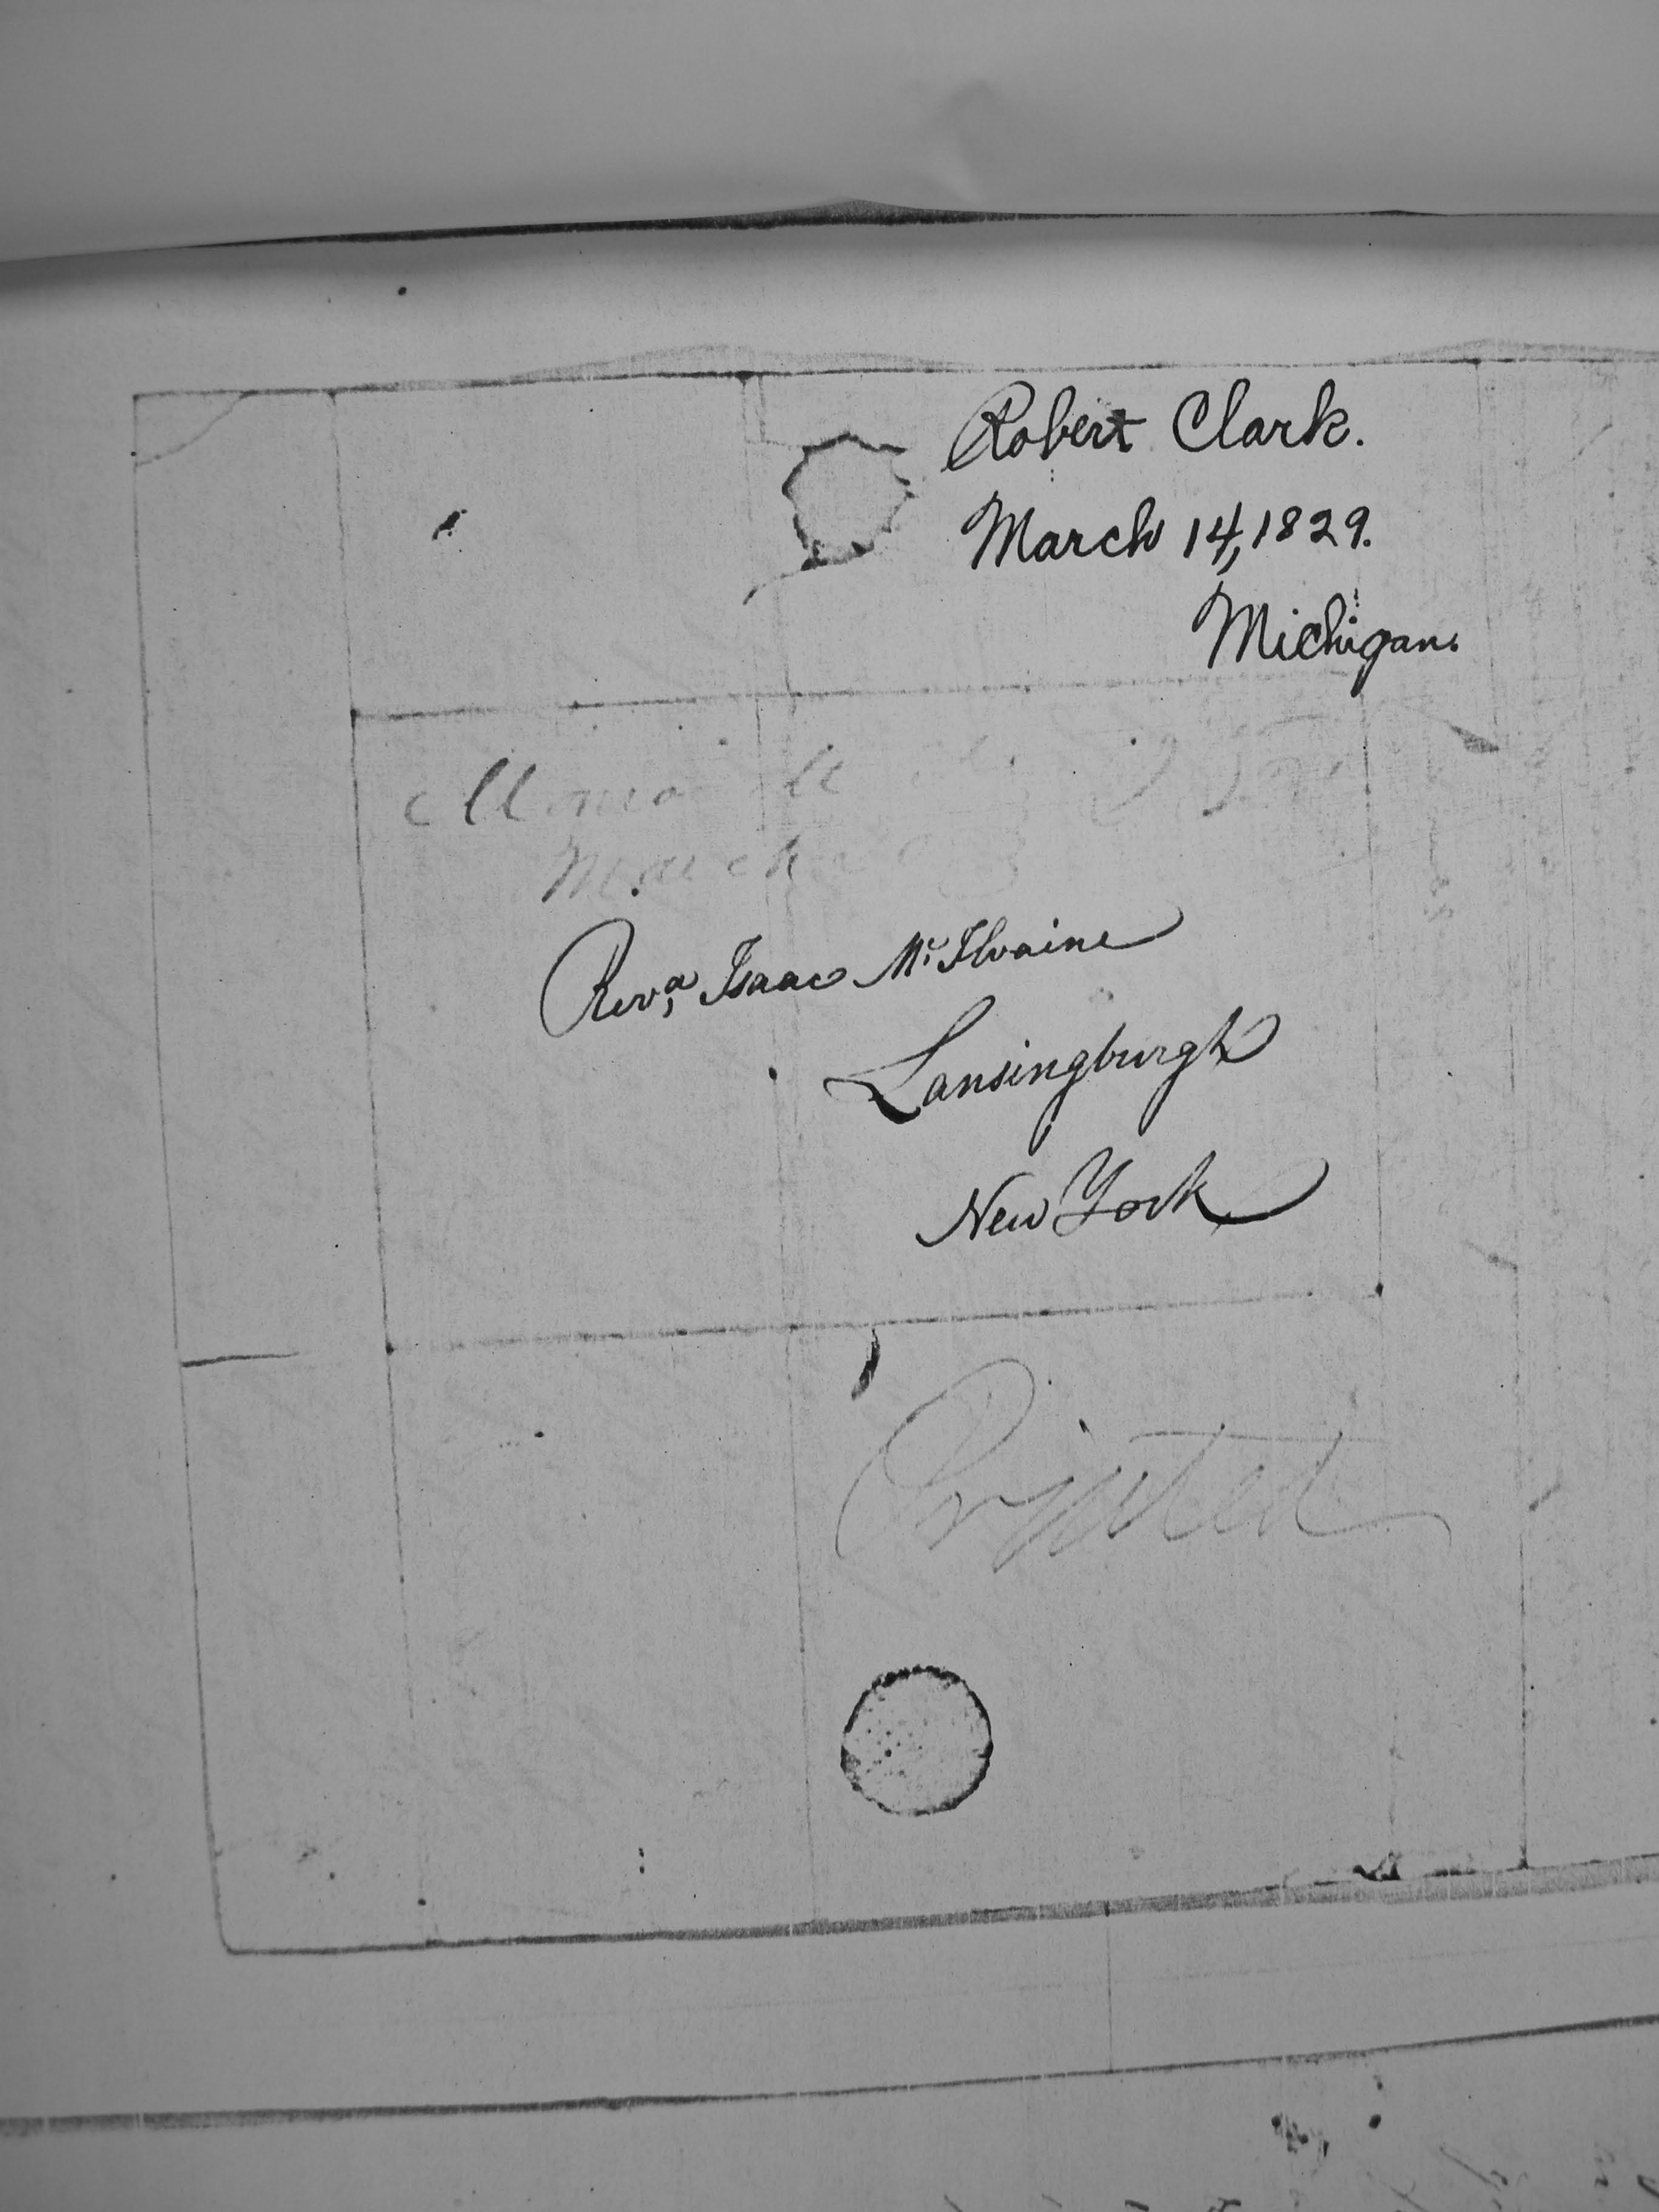 Robert Clark.
March 14, 1829.
Michigan.
March
Revd, Isaac Mc Ilvaine
Lansingburgh
New York